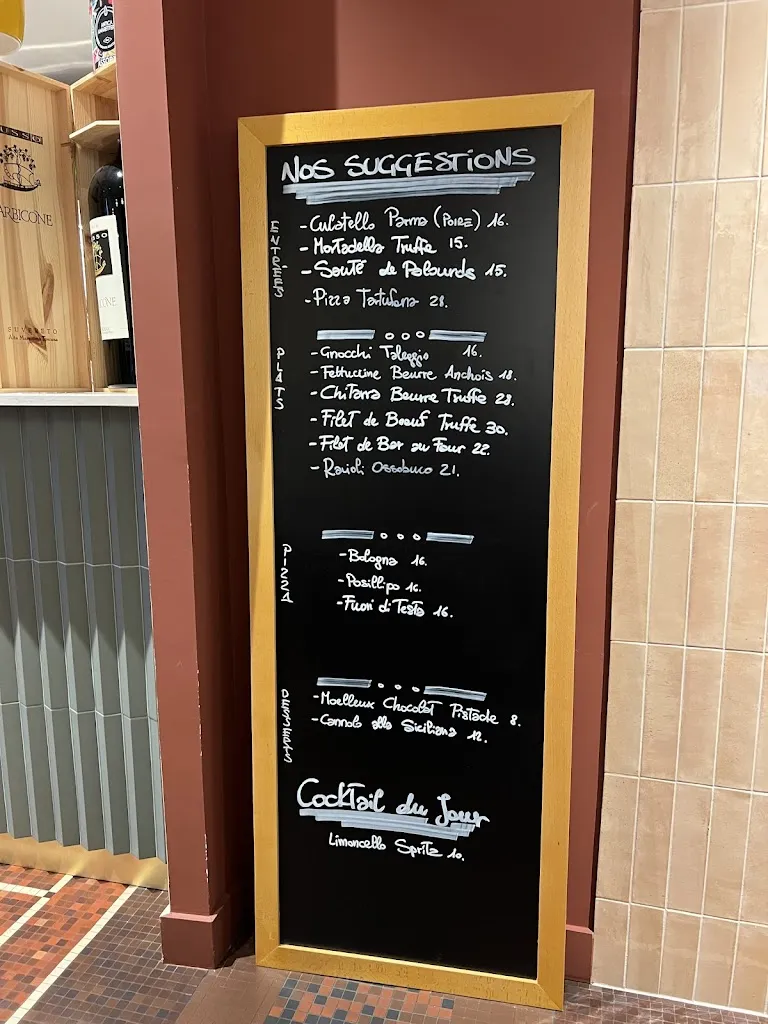 NOS SUGGESTIONS
ENTRÉES
- Culatello Parma (Poire) 16.
- Mortadella Truffe 15.
- Sauté de Palourds 15.
- Pizza Tartufana 28.
PLATS
- Gnocchi Taleggio 16.
- Fettuccine Beurre Anchois 18.
- Chitarra Beurre Truffe 28.
- Filet de Boeuf Truffe 30.
- Filet de Bar au Four 22.
- Ravioli Ossobuco 21.
PIZZA
- Bologna 16.
- Posillipo 16.
- Fuori di Testa 16.
DESSERTS
- Moelleux Chocolat Pistache 8.
- Cannolo alla Siciliana 12.
Cocktail du Jour
Limoncello Spritz 10.
ARBICONE
SUVERETO